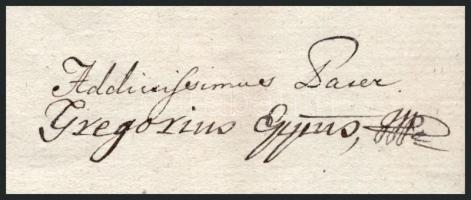 Addictissimus Pater.
Gregorius Eppus,